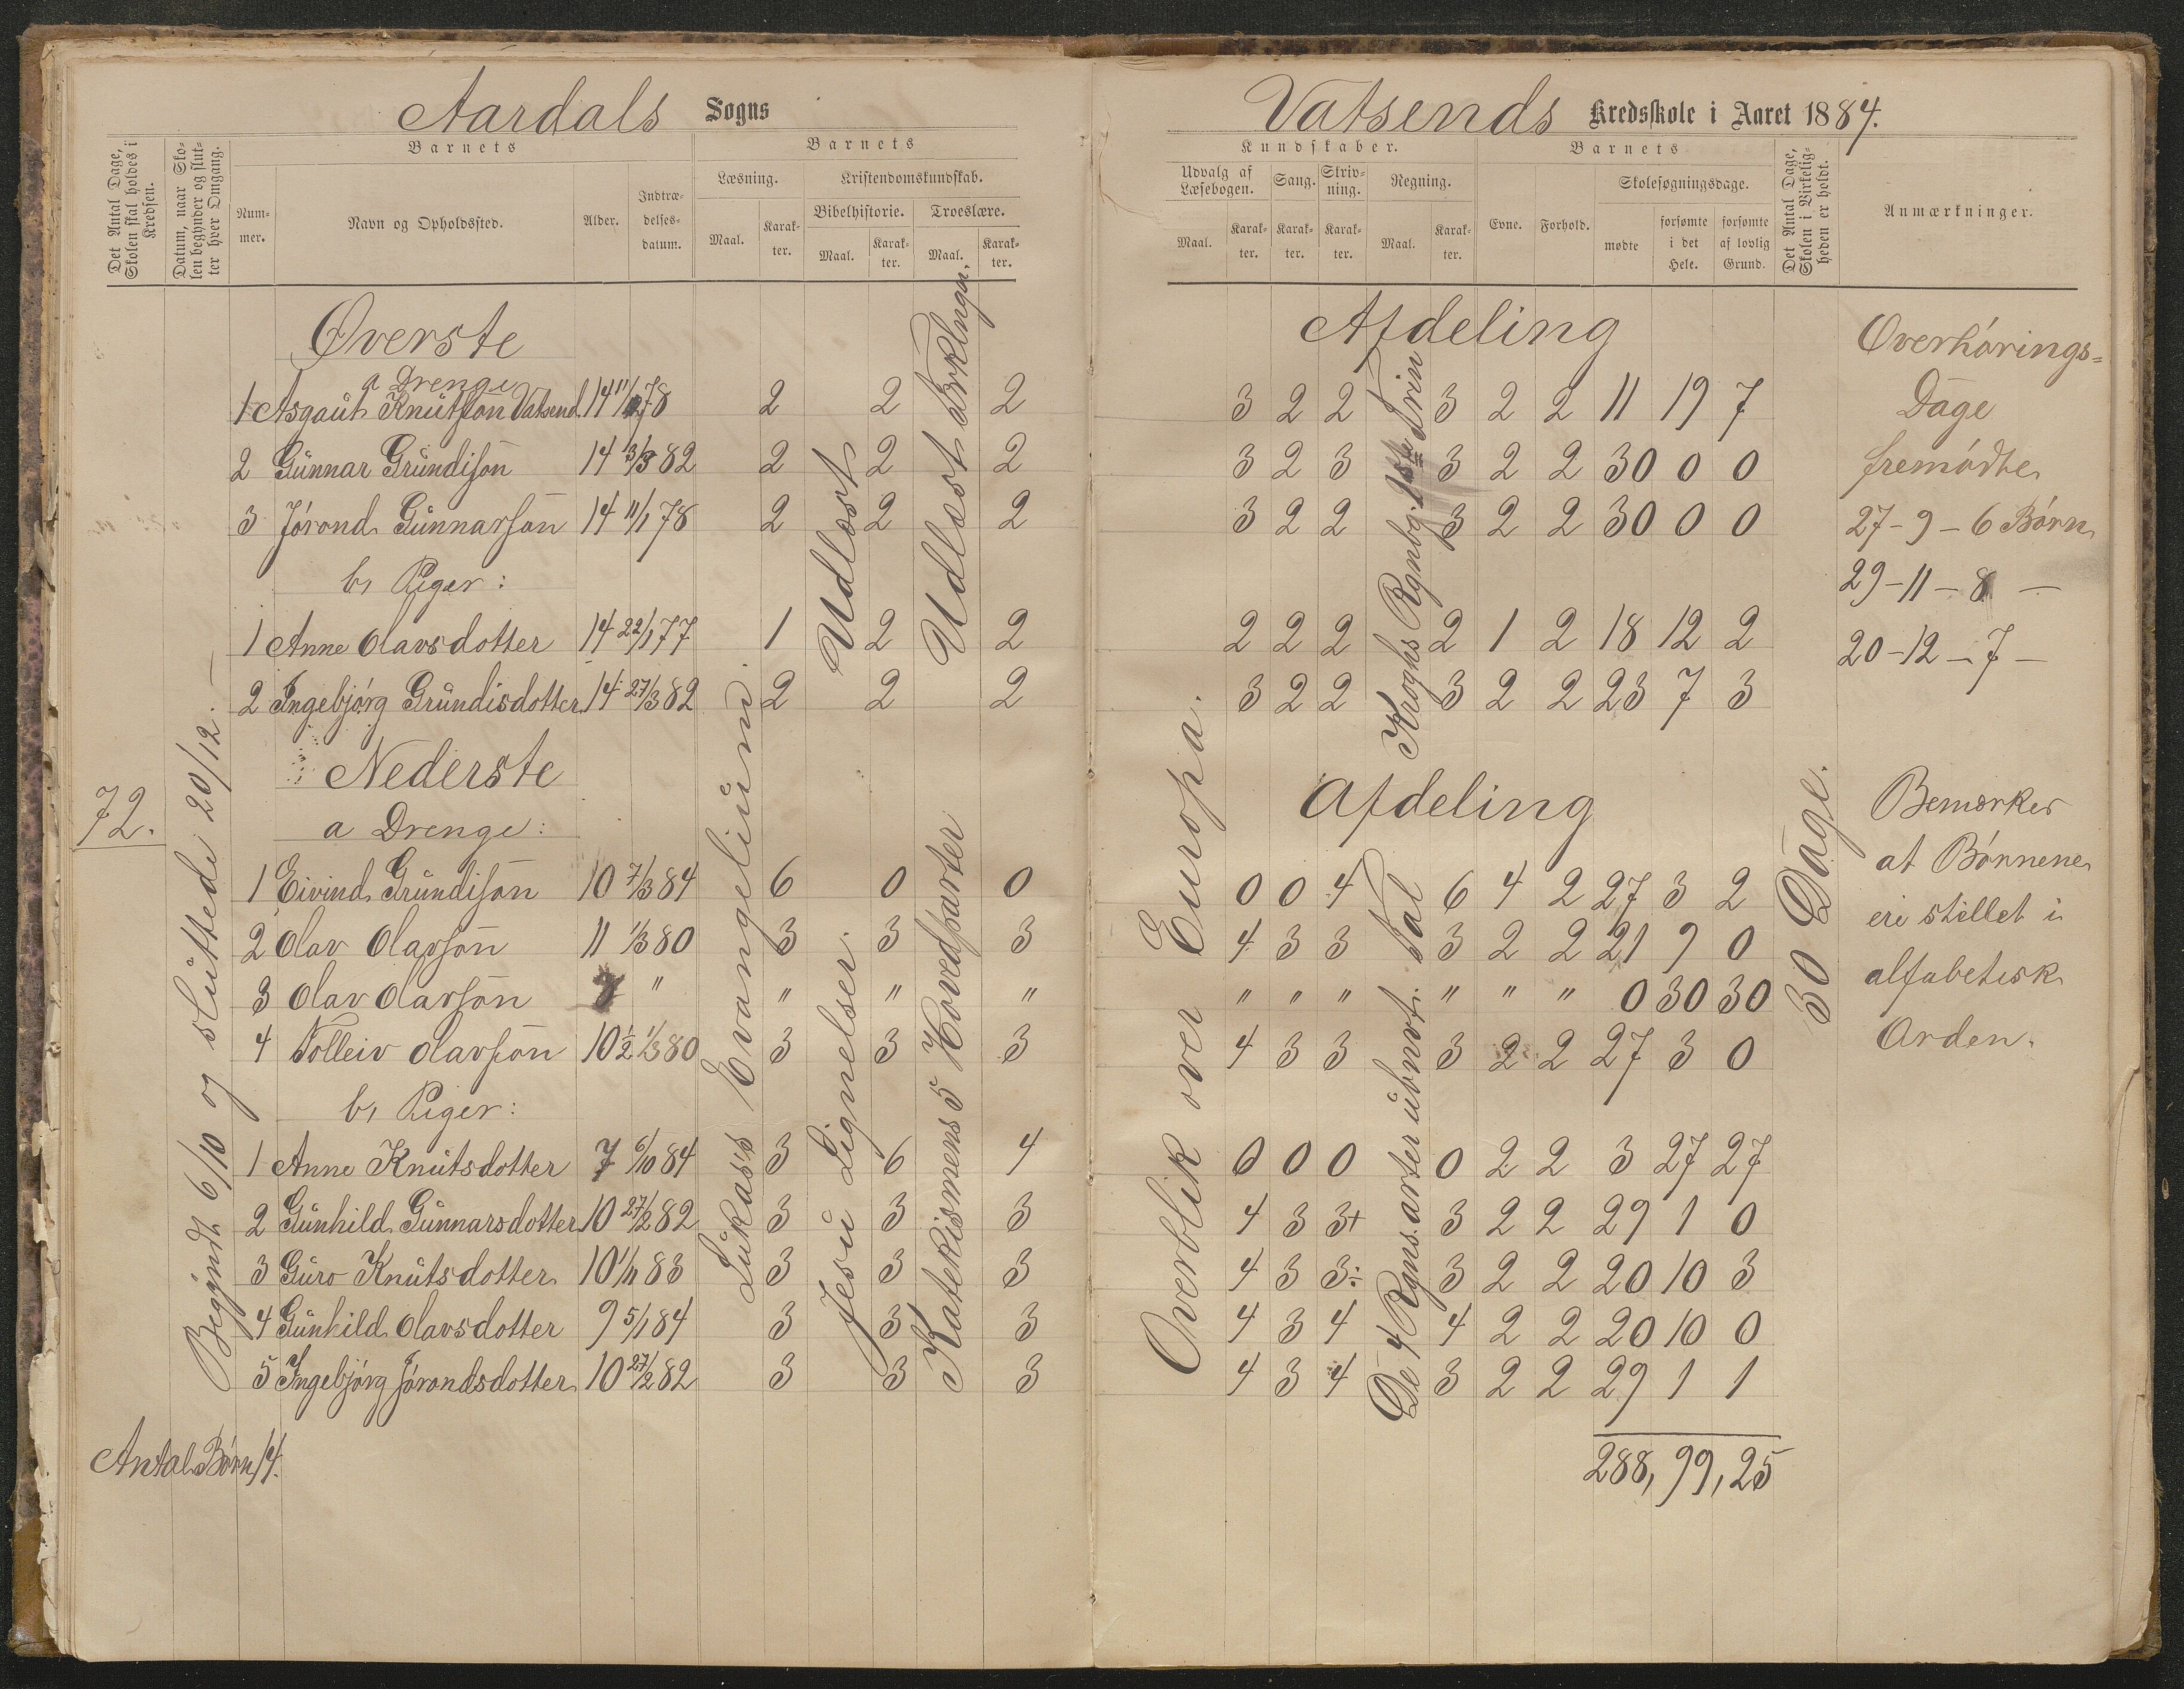 Aardals Sogns
Vatsends Kredsskole i Aaret 1884.
Det Antal Dage, Skolen skal holdes i Kredsen.
Datum, naar Skolen begynder og slutter hver Omgang.
Barnets
Nummer.
Navn og Opholdssted.
Alder.
Indtrædelsesdatum.
Barnets
Læsning.
Maal.
Karakter.
Kristendomskundskab.
Bibelhistorie.
Maal.
Karakter.
Troeslære.
Maal.
Karakter.
Kundskaber.
Udvalg af Læsebogen.
Maal.
Karakter.
Sang.
Karakter.
Skrivning.
Karakter.
Regning.
Maal.
Karakter.
Barnets
Evne.
Forhold.
Skolesøgningsdage.
mødte
forsømte i det Hele.
forsømte af lovlig Grund.
Det Antal Dage, Skolen i Virkeligheden er holdt.
Anmærkninger.
72.
Begyndt 6/10 og sluttede 20/12.
Øverste Afdeling
a Drenge
1 Asgaut Knutson Vatsend 14 78 2 2 2 3 2 2 3 2 2 11 19 7
2 Gunnar Grundison 14 82 2 2 2 3 2 3 3 2 2 30 0 0
3 Jórond Gunnarson 14 11/1 78 2 2 2 3 2 2 3 2 2 30 0 0
b, Piger:
1 Anne Olavsdotter 14 22/1 77 1 2 2 2 2 2 2 1 2 18 12 2
2 Ingebjórg Grundisdotter 14 27/3 82 2 2 2 3 2 2 3 2 2 23 7 3
Udlæst
Udlæst
Kroghs Rgnbog. 1ste Trin
Nederste Afdeling
a Drenge:
1 Eivind Grundison 10 7/3 84 6 0 0 0 0 4 6 4 2 27 3 2
2 Olav Olavson 11 1/3 80 3 3 3 4 3 3 3 2 2 21 9 0
3 Olav Olavson 7 " " " " " " " " " " 0 30 30
4 Tolleiv Olavson 10½ 1/3 80 3 3 3 4 3 3 3 2 2 27 3 0
b, Piger:
1 Anne Knutsdotter 7 6/10 84 3 6 4 0 0 0 0 2 2 3 27 27
2 Gunhild Gunnarsdotter 10 27/2 82 3 3 3 4 3 3+ 3 2 2 29 1 0
3 Guro Knutsdotter 10 83 3 3 3 4 3 3÷ 3 2 2 20 10 3
4 Gunhild Olavsdotter 9 5/1 84 3 3 3 4 3 4 4 2 2 20 10 0
5 Ingebjórg Jórondsdotter 10 27/2 82 3 3 3 4 3 4 3 2 2 29 1 1
Lukas's Evangelium
Jesu Lignelser.
Katekismens 5 Hovedparter
Overblik over Europa.
De 4 Rgns.arter i ubnvt. Tal
30 Dage.
Antal Børn 14.
288, 99, 25
Overhørings-
Dage
fremódte
27-9-6 Børn
29-11-8 —
20-12-7 —
Bemærkes
at Børnene
ere stillet i
alfabetisk
Orden.